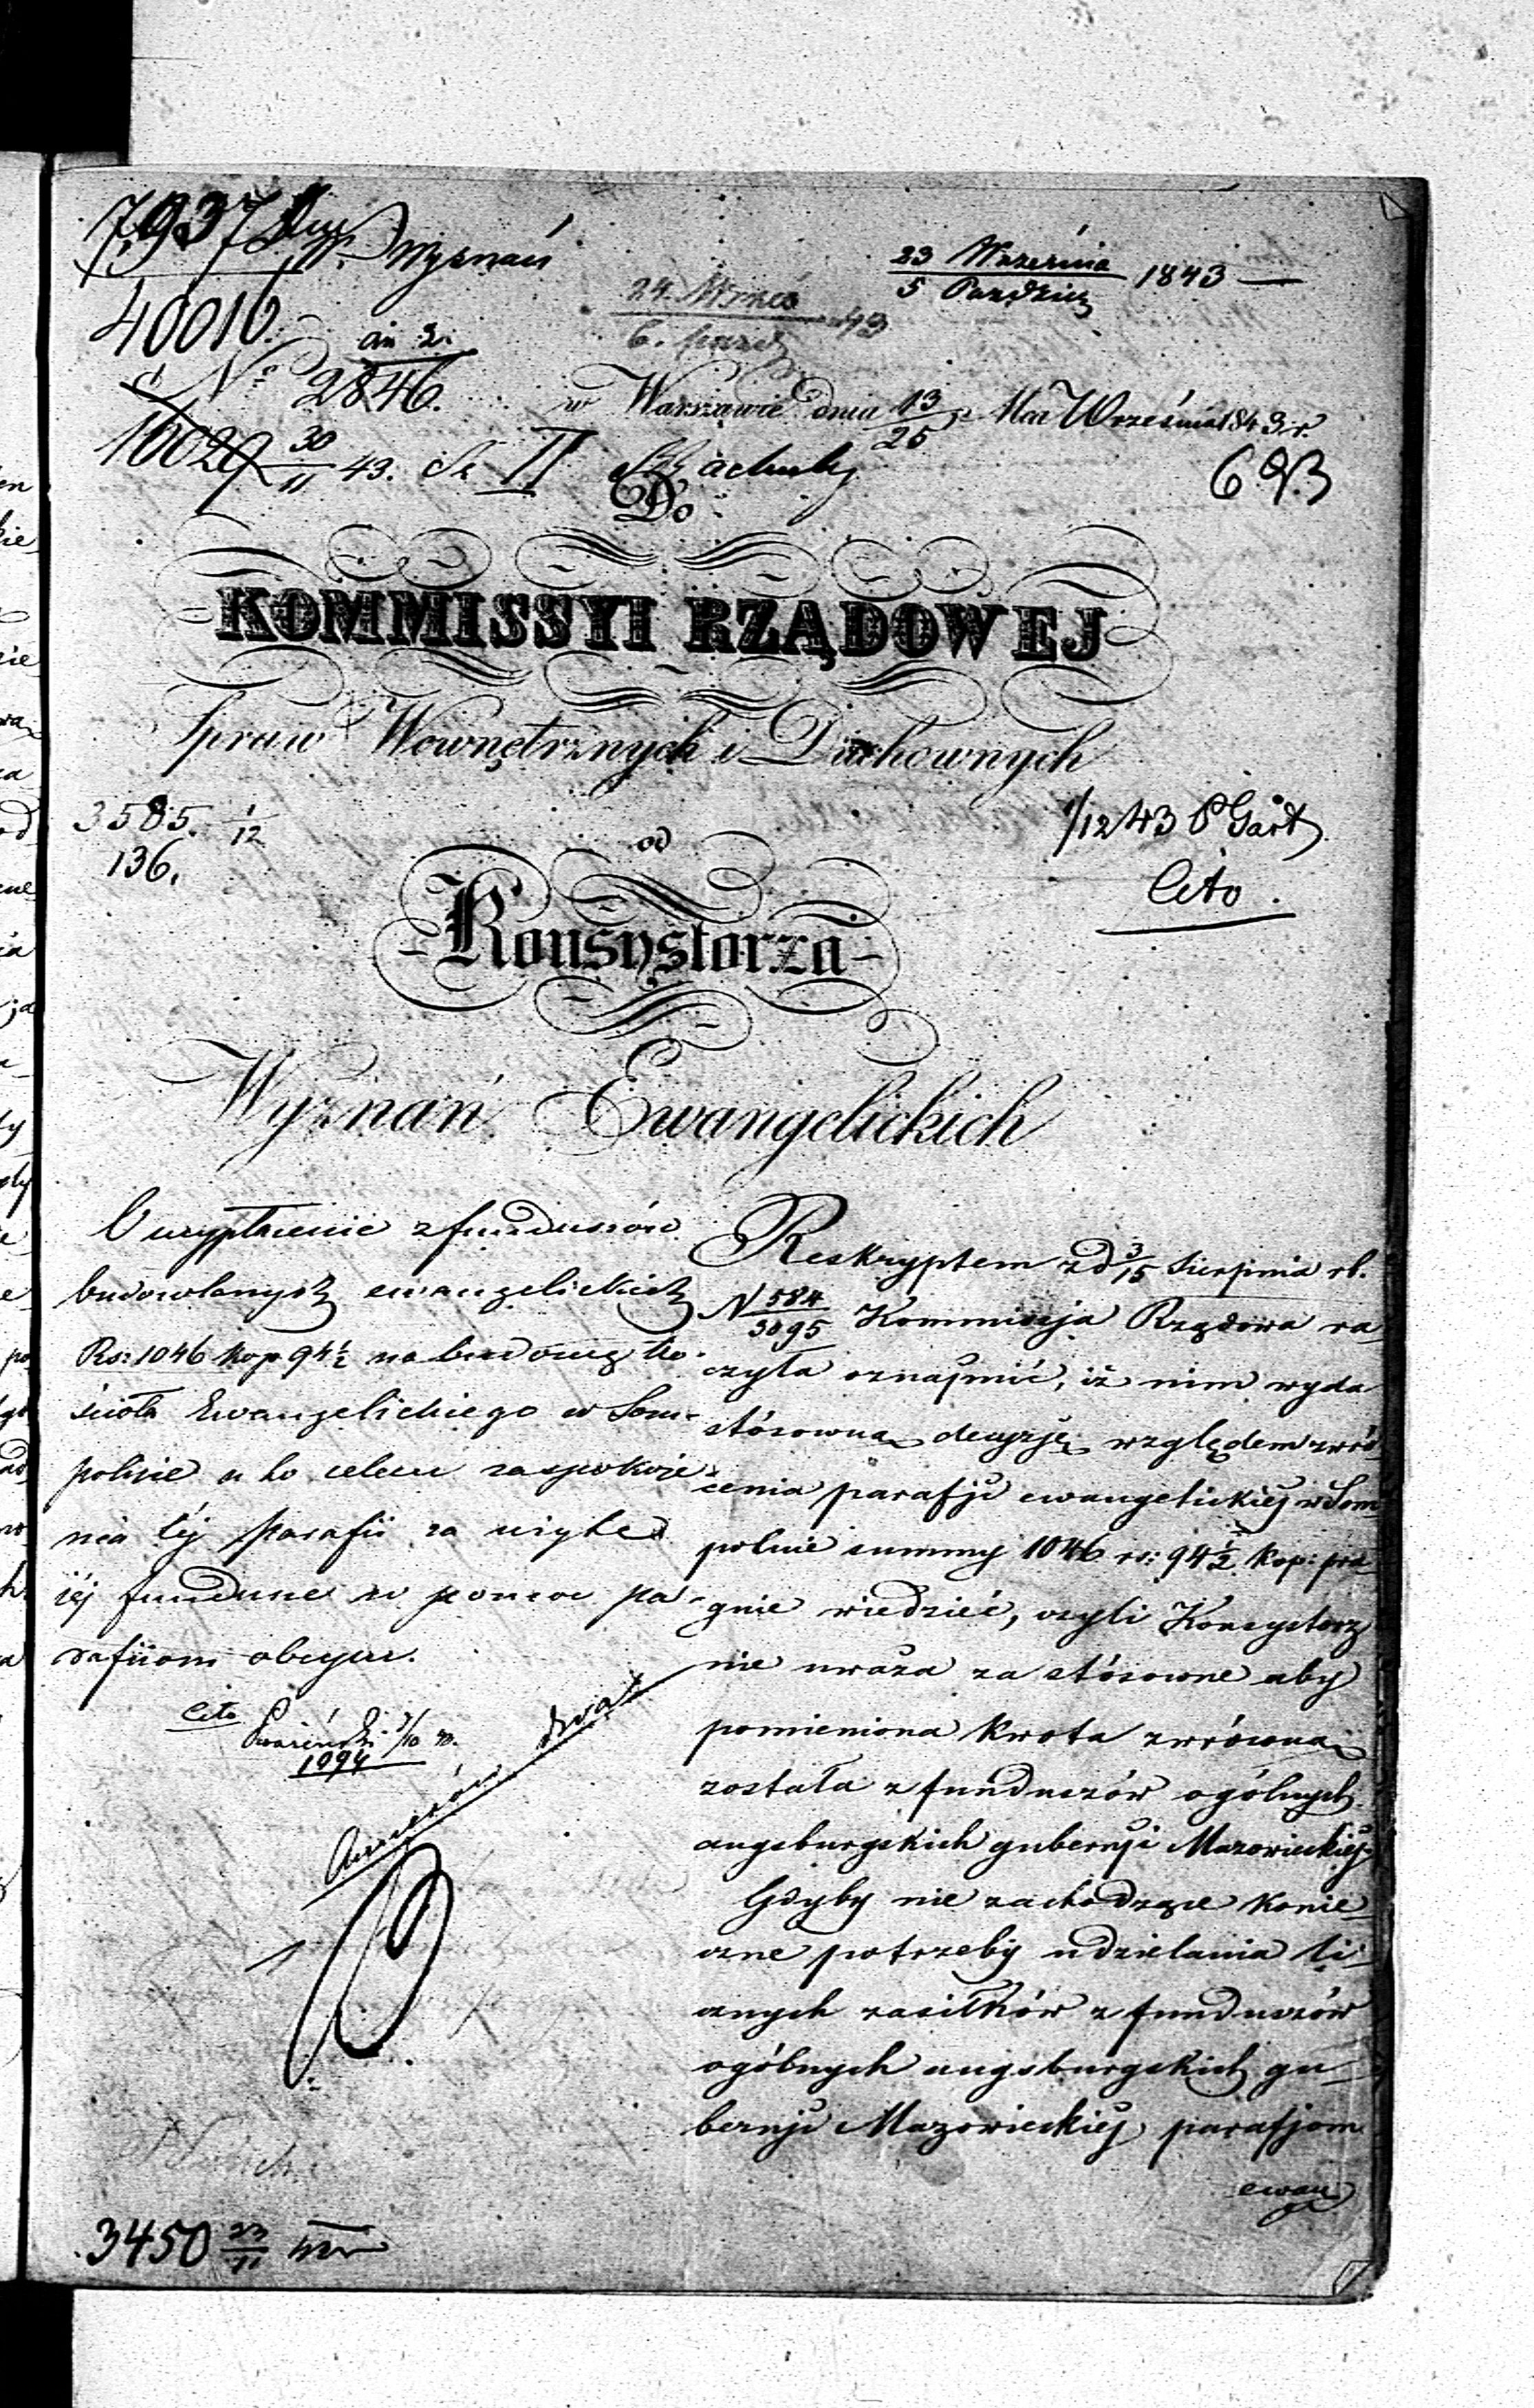 7937
Wyznań
23 Września
5 Paździer 1843
40016.
43
N° 2846.
w Warszawie dnia 13/25 Mca Września 1843 r.
10029 30/11 43. II
693
Do
KOMMISSYI RZĄDOWEJ
Spraw Wewnętrznych i Duchownych
3585. 1/12
136.
1/12 43
Cito.
od
Konsystorza
Wyznań Ewangelickich
O wypłacenie z funduszów
budowlanych ewangelickich
Rs: 1046 kop 94½ na budowę ko-
ścioła Ewangelickiego w Som-
polnie w celu zaspokoje-
nia téj parafii za użyte
jéj fundusze w pomoc pa-
rafiiom obcym.
Cito
1094
Reskryptem z d 3/15 Sierpnia rb.
N 584/3095 Kommissja Rządowa ra-
czyła oznajmić, iż nim wyda
stósowną decyzję względem zwró-
cenia parafji ewangelickiéj w Som-
polnie summy 1046 rs: 94½ kop: pra-
gnie wiedzieć, czyli Konsystorz
nie uważa za stósowne aby
pomieniona kwota zwróconą
została z funduszów ogólnych
augsburgskich gubernji Mazowieckiéj.
Gdyby nie zachodzące konie-
czne potrzeby udzielania li-
cznych zasiłków z funduszów
ogólnych augsburgskich gu-
bernji Mazowieckiéj parafjom
ewan-
3450 23/11